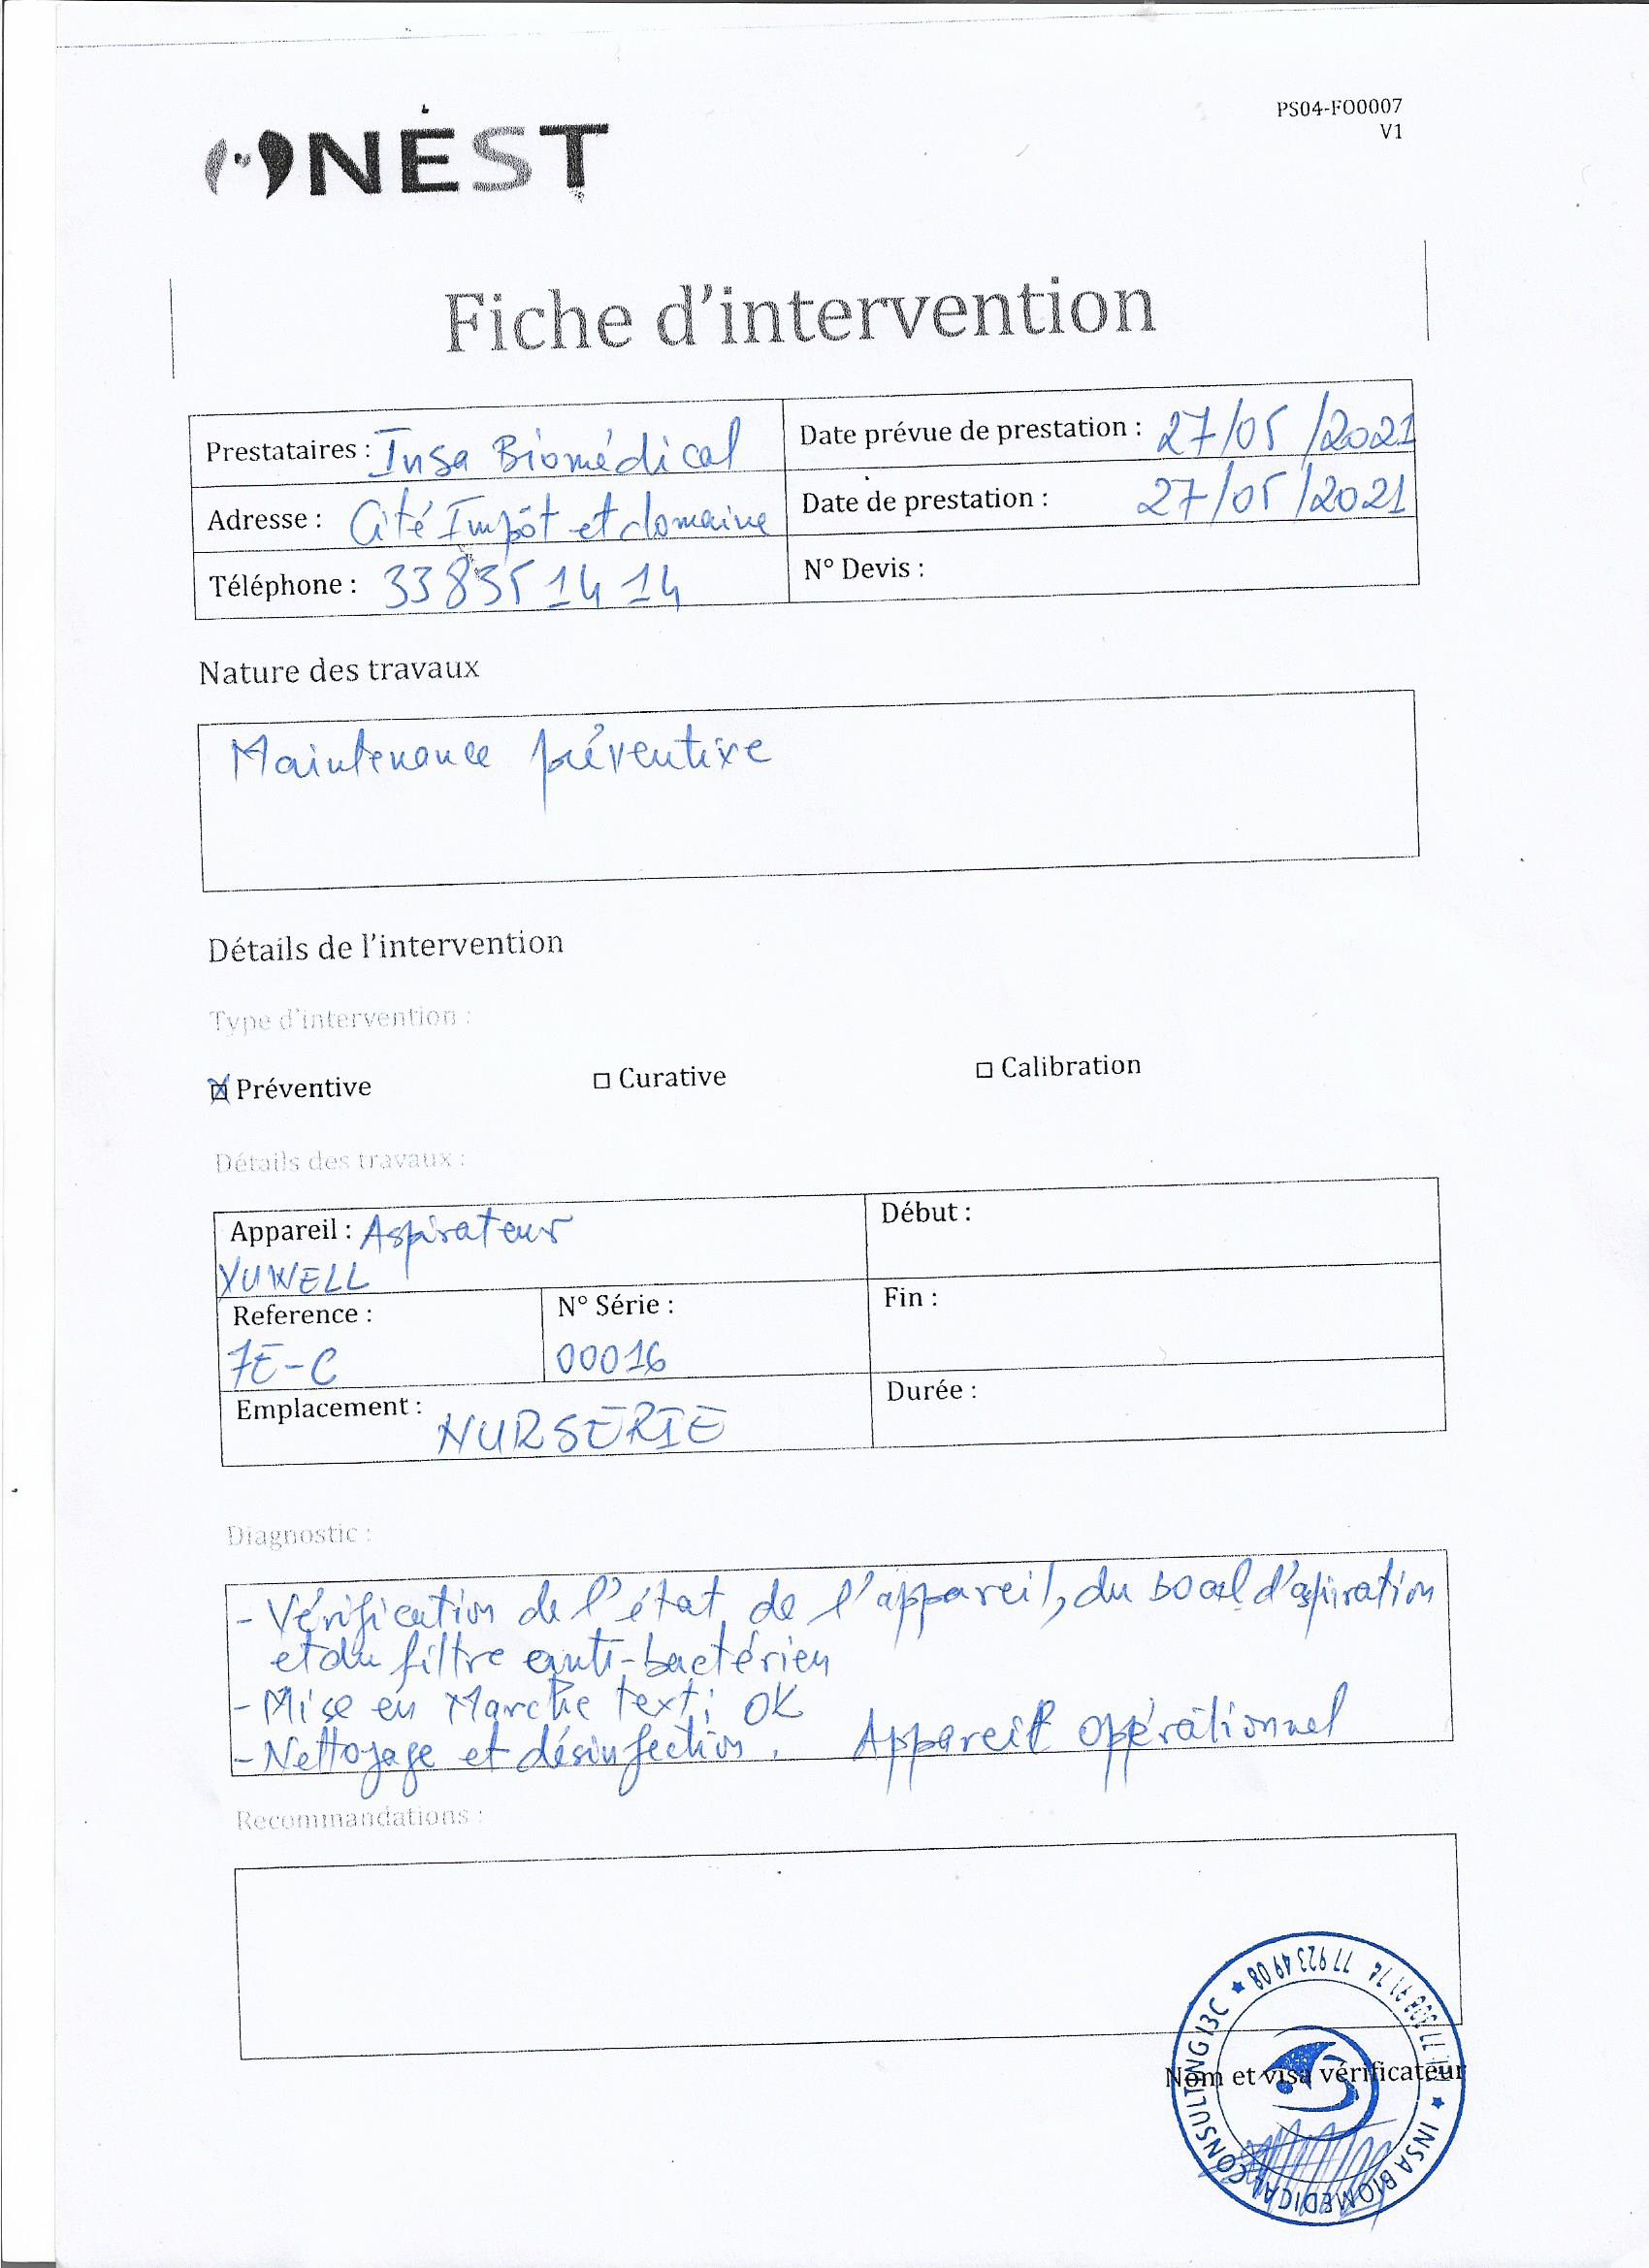 NEST
PS04-FO0007
V1
Fiche d'intervention
Prestataires : Insa Biomédical
Date prévue de prestation : 27/05/2021
Adresse : Cité Impôt et domaine
Date de prestation : 27/05/2021
Téléphone : 33 835 14 14
N° Devis :
Nature des travaux
Maintenance préventive
Détails de l'intervention
Type d'intervention :
Préventive
Curative
Calibration
Détails des travaux :
Appareil : Aspirateur
YUWELL
Début :
Reference :
7E-C
N° Série :
00016
Fin :
Emplacement : NURSERIE
Durée :
Diagnostic :
- Vérification de l'état de l'appareil, du bocal d'aspiration
et du filtre anti-bactérien
- Mise en Marche text : OK
- Nettoyage et désinfection. Appareil opérationnel
Recommandations :
Nom et visa vérificateur
INSA BIOMEDICAL CONSULTING I3C
77 923 49 08